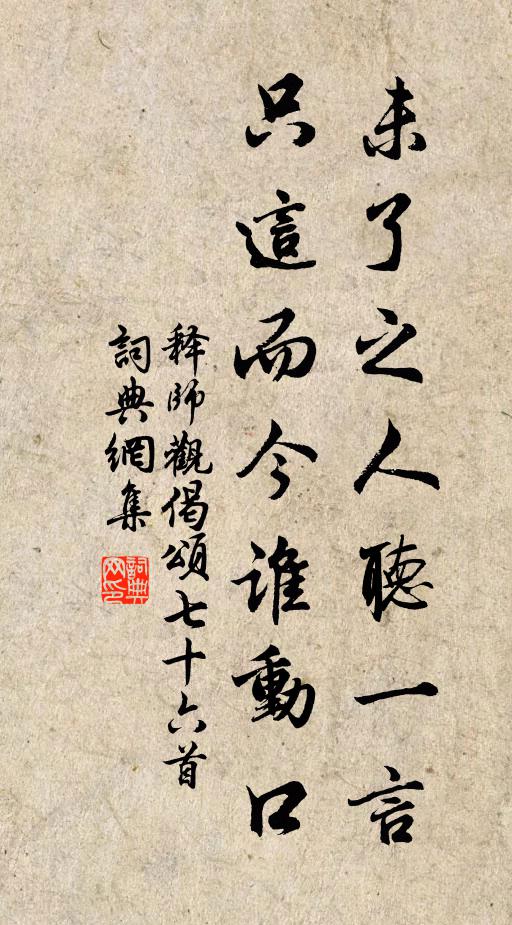 未了之人聽一言
只這而今誰動口
释師觀偈頌七十六首
詞典網集
詞典网印